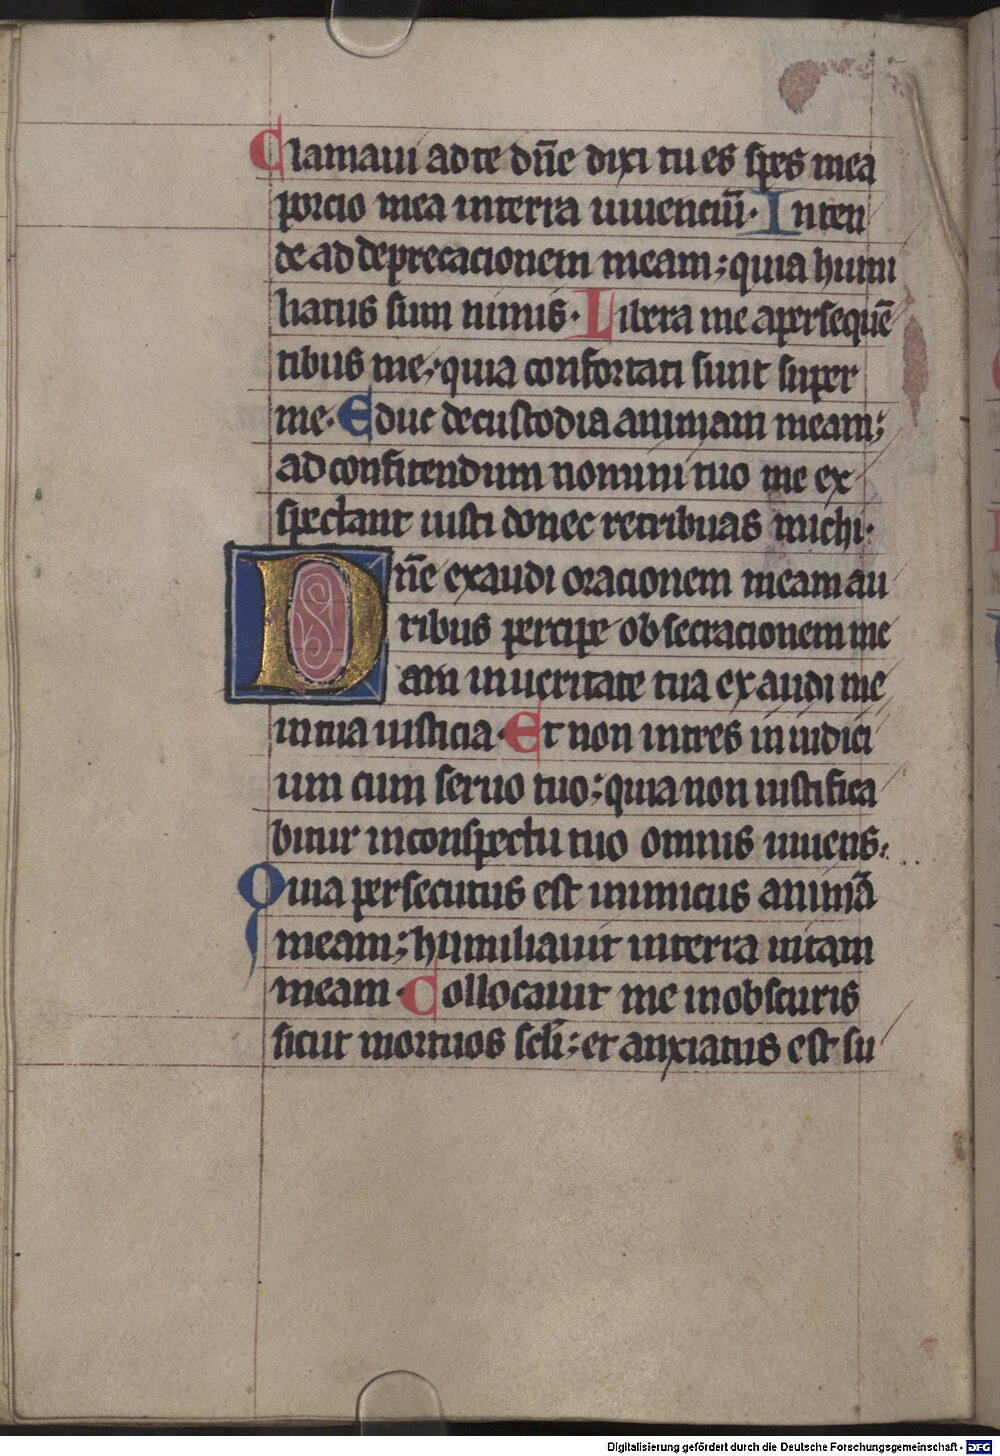 Clamaui ad te dn̄e dixi tu es spes mea
porcio mea in terra uiuenciū· Inten
de ad deprecacionem meam; quia humi
liatus sum nimis· Libera me a persequē
tibus me; quia confortati sunt super
me· Educ de custodia animam meam;
ad confitendum nomini tuo me ex
spectant iusti donec retribuas michi·
Dn̄e exaudi oracionem meam au
ribus percipe obsecracionem me
am in ueritate tua exaudi me
in tua iusticia· Et non intres in iudici
um cum seruo tuo; quia non iustifica
bitur in conspectu tuo omnis uiuens·
Quia persecutus est inimicus animā
meam; humiliauit in terra uitam
meam· Collocauit me in obscuris
sicut mortuos scl̄i; et anxiatus est su
Digitalisierung gefördert durch die Deutsche Forschungsgemeinschaft - DFG